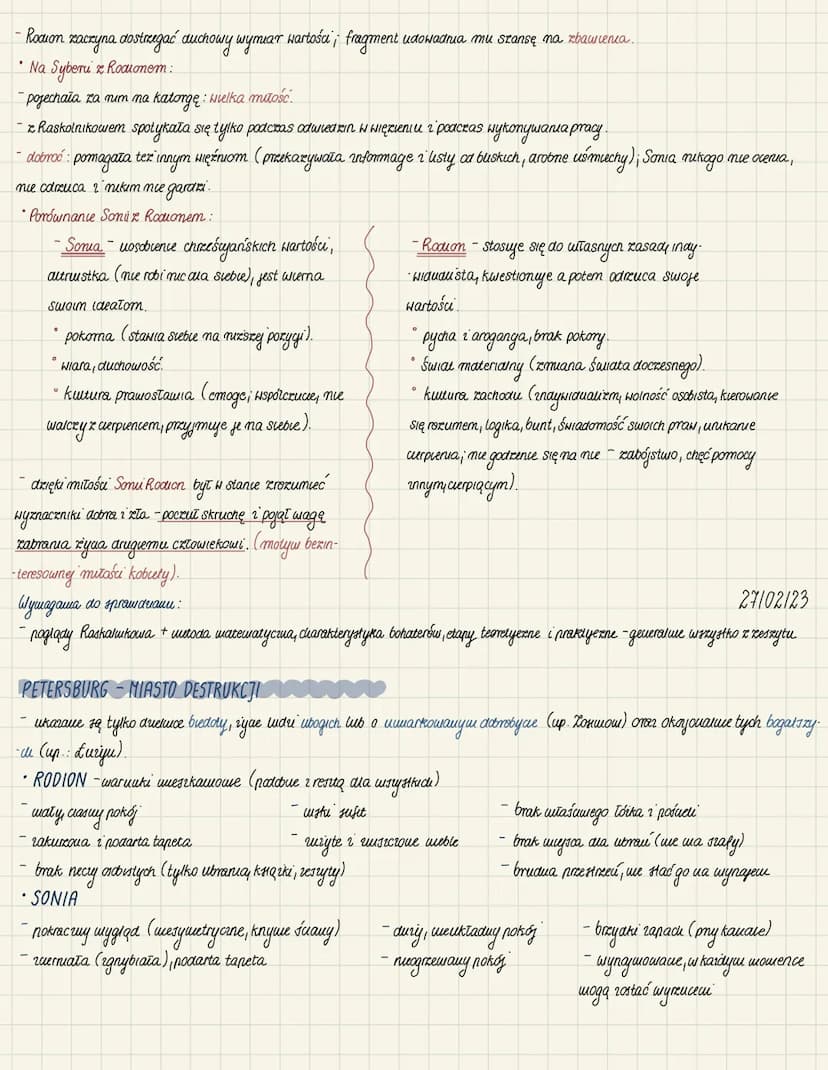 - Rodion zaczyna dostrzegać duchowy wymiar wartości; fragment udowadnia mu szansę na zbawienia.
• Na Syberii z Rodionem:
- pojechała za nim na katorgę: wielka miłość.
- z Raskolnikowem spotykała się tylko podczas odwiedzin w więzieniu i podczas wykonywania pracy.
- dobroć: pomagała też innym więźniom (przekazywała informacje i listy od bliskich, drobne uśmiechy); Sonia nikogo nie ocenia,
nie odrzuca i nikim nie gardzi.
• Porównanie Sonii z Rodionem:
- Sonia - uosobienie chrześcijańskich wartości,
altruistka (nie robi nic dla siebie), jest wierna
swoim ideałom.
° pokorna (stawia siebie na niższej pozycji).
° wiara, duchowość.
° kultura prawosławia (emocje; współczucie, nie
walczy z cierpieniem, przyjmuje je na siebie).
- dzięki miłości Sonii Rodion był w stanie zrozumieć
wyznaczniki dobra i zła - poczuł skruchę i pojął wagę
zabrania życia drugiemu człowiekowi. (motyw bezin-
-teresownej miłości kobiety).
- Rodion - stosuje się do własnych zasad, indy-
-widualista, kwestionuje a potem odrzuca swoje
wartości.
° pycha i arogancja, brak pokory.
° świat materialny (zmiana świata doczesnego).
° kultura zachodu (indywidualizm, wolność osobista, kierowanie
się rozumem, logika, bunt, świadomość swoich praw, unikanie
cierpienia; nie godzenie się na nie - zabójstwo, chęć pomocy
innym, cierpiącym).
Wymagania do sprawdzianu: 27/02/23
- poglądy Raskolnikowa + metoda matematyczna, charakterystyka bohaterów, etapy teoretyczne i praktyczne - generalnie wszystko z zeszytu
PETERSBURG - MIASTO DESTRUKCJI
- ukazane są tylko dzielnice biedoty, życie ludzi ubogich lub o umiarkowanym dobrobycie (np. Zosimow) oraz okazjonalnie tych bogatszy-
-ch (np.: Łużyn).
• RODION - warunki mieszkaniowe (podobne z resztą dla wszystkich)
- mały, ciasny pokój - niski sufit - brak właściwego łóżka i pościeli
- zakurzona i podarta tapeta - zużyte i zniszczone meble - brak miejsca dla ubrań (nie ma szafy)
- brak rzeczy osobistych (tylko ubrania, książki, zeszyty) - brudna przestrzeń, nie stać go na wynajem
• SONIA
- pokraczny wygląd (niesymetryczne, krzywe ściany) - duży, nieukładny pokój - brzydki zapach (przy kanale)
- zczerniała (zgnybiała), podarta tapeta - nieogrzewany pokój - wynajmowane, w każdym momencie
mogą zostać wyrzuceni